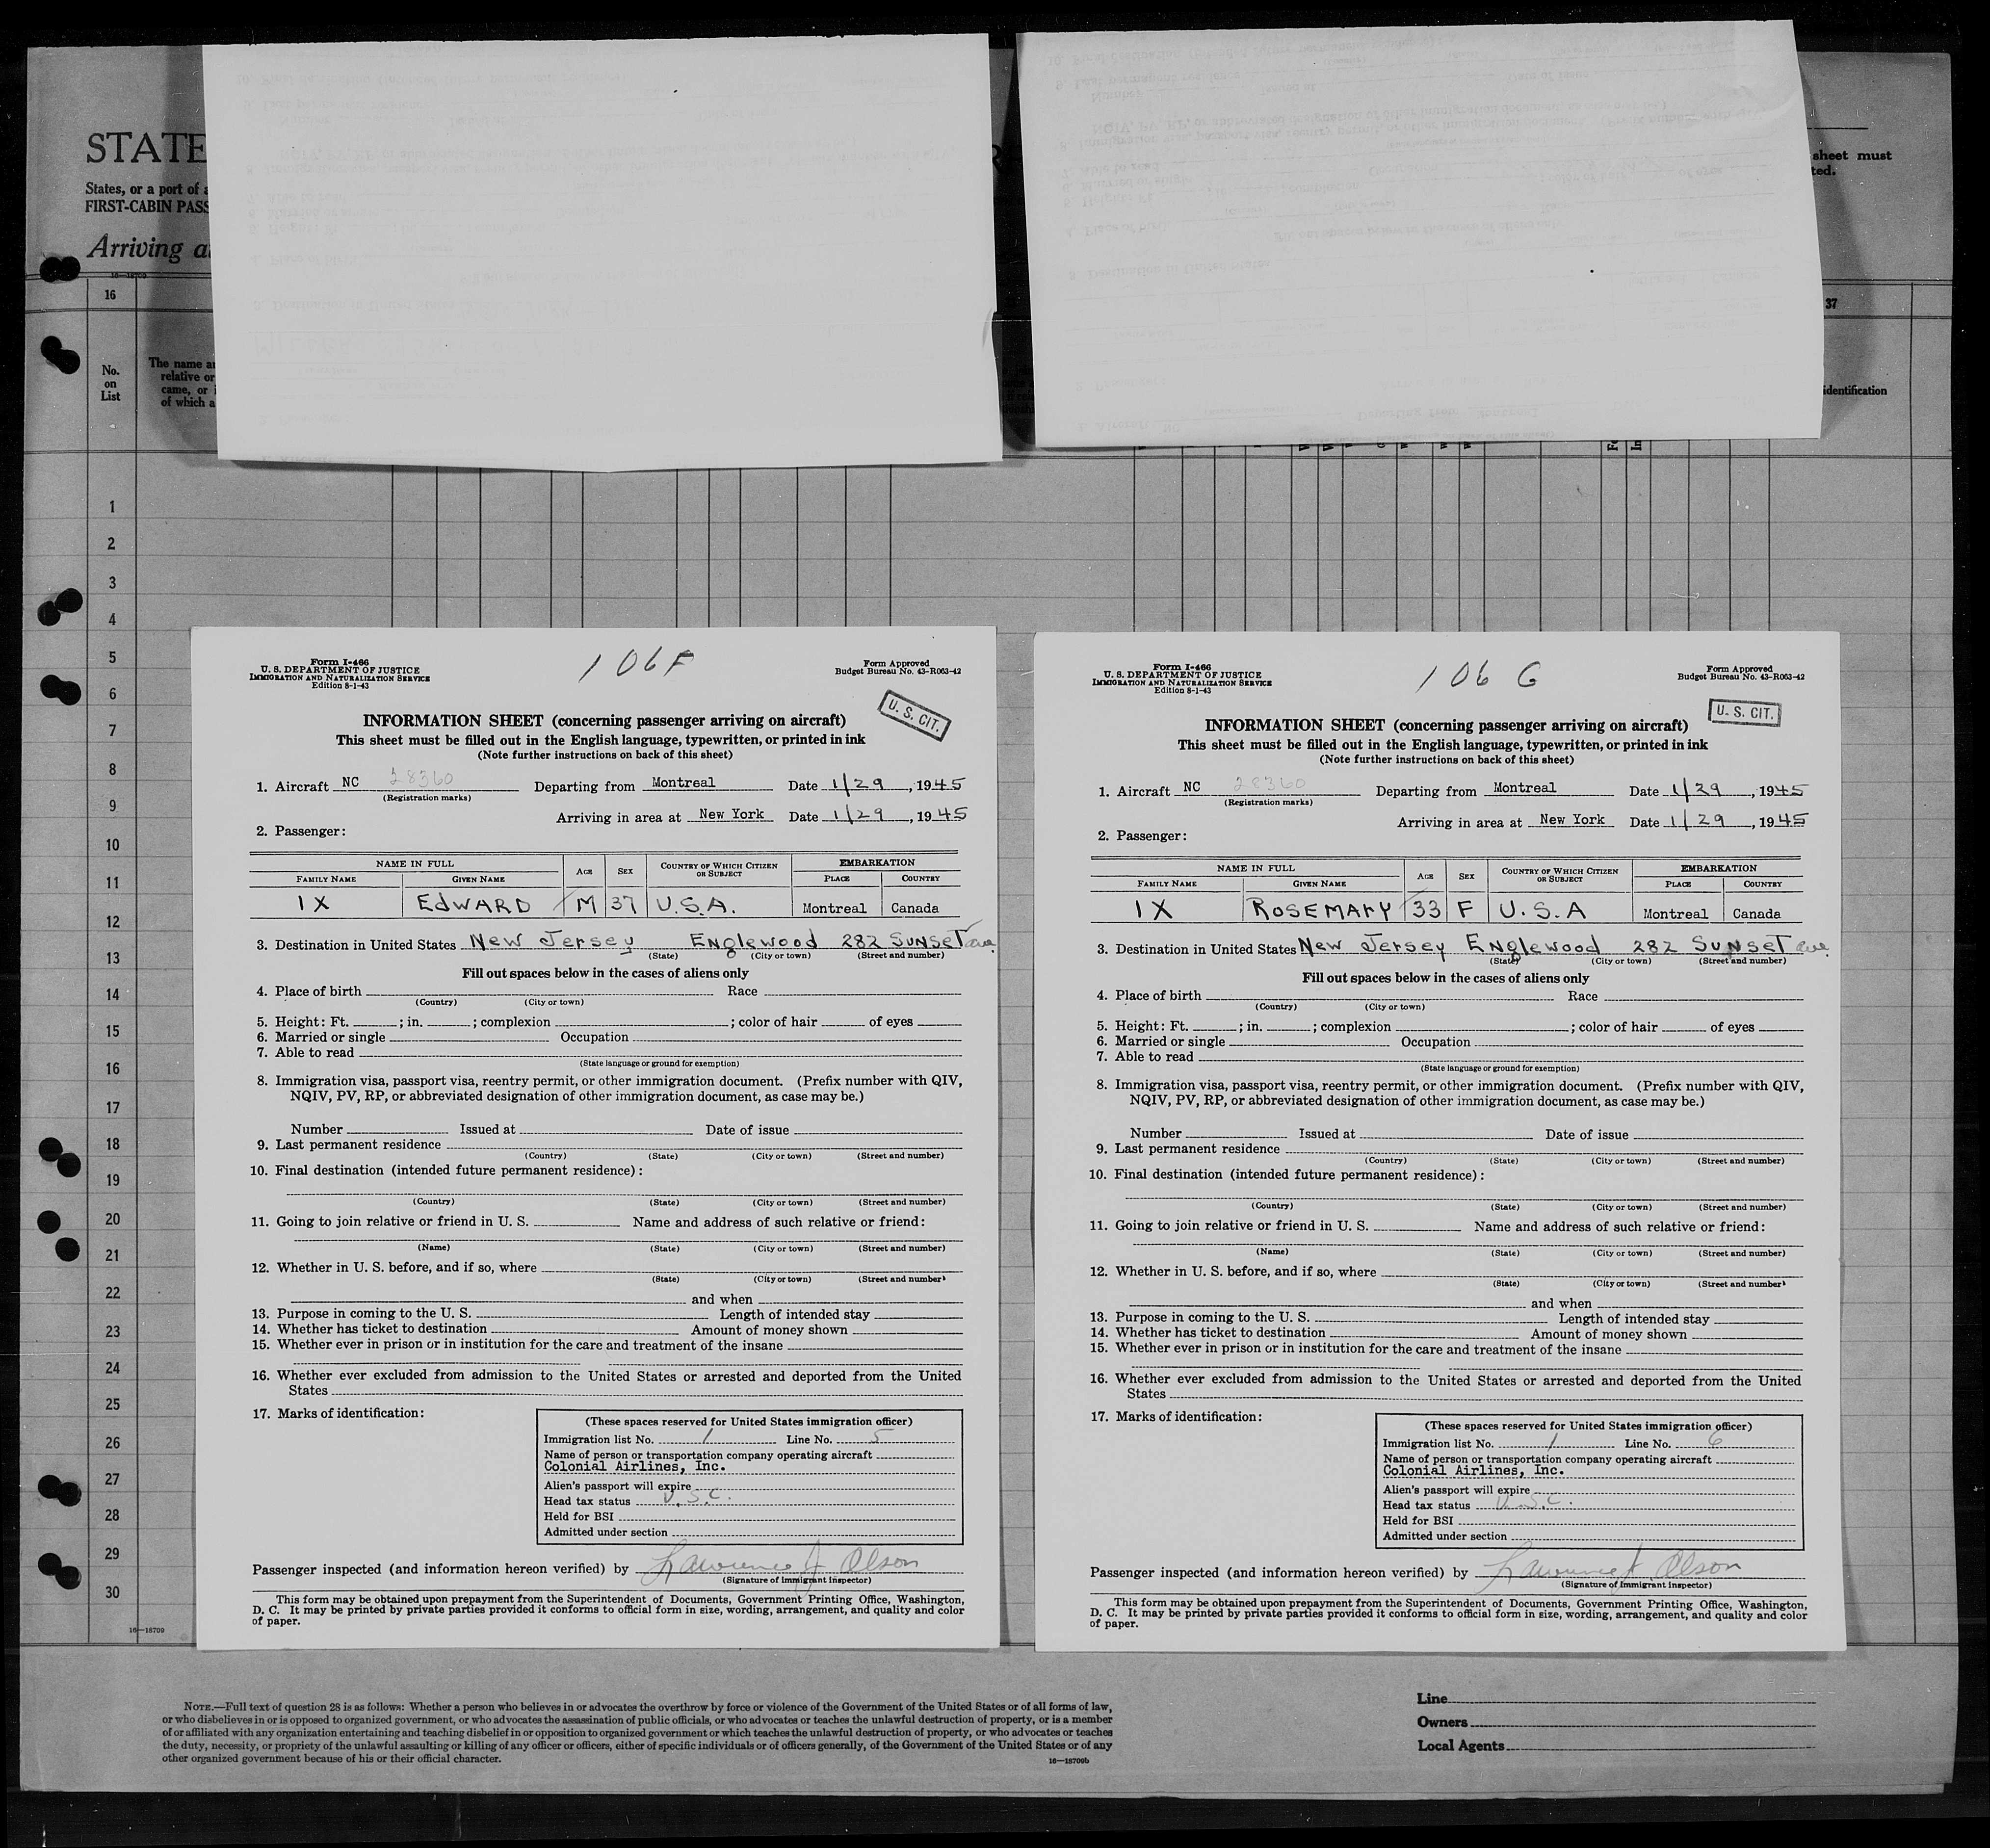 STATE
States, or a port of a
FIRST-CABIN PASS
Arriving a
sheet must
ted.
16—18709
16
37
No.
on
List
The name a
relative or
came, or i
of which a
identification
1
2
3
4
5
6
7
8
9
10
11
12
13
14
15
16
17
18
19
20
21
22
23
24
25
26
27
28
29
30
16—18709
Form I-466
U. S. DEPARTMENT OF JUSTICE
IMMIGRATION AND NATURALIZATION SERVICE
Edition 8-1-43
106F
Form Approved
Budget Bureau No. 43-R063-42
U. S. CIT.
INFORMATION SHEET (concerning passenger arriving on aircraft)
This sheet must be filled out in the English language, typewritten, or printed in ink
(Note further instructions on back of this sheet)
1. Aircraft NC 28360 Departing from Montreal Date 1/29, 1945
(Registration marks)
Arriving in area at New York Date 1/29, 1945
2. Passenger:
NAME IN FULL AGE SEX COUNTRY OF WHICH CITIZEN OR SUBJECT EMBARKATION
FAMILY NAME GIVEN NAME PLACE COUNTRY
IX EDWARD M 37 U.S.A. Montreal Canada
3. Destination in United States New Jersey Englewood 282 Sunset ave
(State) (City or town) (Street and number)
Fill out spaces below in the cases of aliens only
4. Place of birth Race
(Country) (City or town)
5. Height: Ft. ; in. ; complexion ; color of hair of eyes
6. Married or single Occupation
7. Able to read
(State language or ground for exemption)
8. Immigration visa, passport visa, reentry permit, or other immigration document. (Prefix number with QIV,
NQIV, PV, RP, or abbreviated designation of other immigration document, as case may be.)
Number Issued at Date of issue
9. Last permanent residence
(Country) (State) (City or town) (Street and number)
10. Final destination (intended future permanent residence):
(Country) (State) (City or town) (Street and number)
11. Going to join relative or friend in U. S. Name and address of such relative or friend:
(Name) (State) (City or town) (Street and number)
12. Whether in U. S. before, and if so, where
(State) (City or town) (Street and number)
and when
13. Purpose in coming to the U. S. Length of intended stay
14. Whether has ticket to destination Amount of money shown
15. Whether ever in prison or in institution for the care and treatment of the insane
16. Whether ever excluded from admission to the United States or arrested and deported from the United
States
17. Marks of identification:
(These spaces reserved for United States immigration officer)
Immigration list No. 1 Line No. 5
Name of person or transportation company operating aircraft
Colonial Airlines, Inc.
Alien's passport will expire
Head tax status U.S.C.
Held for BSI
Admitted under section
Passenger inspected (and information hereon verified) by Lawrence J Olson
(Signature of Immigrant Inspector)
This form may be obtained upon prepayment from the Superintendent of Documents, Government Printing Office, Washington,
D. C. It may be printed by private parties provided it conforms to official form in size, wording, arrangement, and quality and color
of paper.
Form I-466
U. S. DEPARTMENT OF JUSTICE
IMMIGRATION AND NATURALIZATION SERVICE
Edition 8-1-43
106 G
Form Approved
Budget Bureau No. 43-R063-42
U. S. CIT.
INFORMATION SHEET (concerning passenger arriving on aircraft)
This sheet must be filled out in the English language, typewritten, or printed in ink
(Note further instructions on back of this sheet)
1. Aircraft NC 28360 Departing from Montreal Date 1/29, 1945
(Registration marks)
Arriving in area at New York Date 1/29, 1945
2. Passenger:
NAME IN FULL AGE SEX COUNTRY OF WHICH CITIZEN OR SUBJECT EMBARKATION
FAMILY NAME GIVEN NAME PLACE COUNTRY
IX ROSEMARY 33 F U.S.A Montreal Canada
3. Destination in United States New Jersey Englewood 282 Sunset ave.
(State) (City or town) (Street and number)
Fill out spaces below in the cases of aliens only
4. Place of birth Race
(Country) (City or town)
5. Height: Ft. ; in. ; complexion ; color of hair of eyes
6. Married or single Occupation
7. Able to read
(State language or ground for exemption)
8. Immigration visa, passport visa, reentry permit, or other immigration document. (Prefix number with QIV,
NQIV, PV, RP, or abbreviated designation of other immigration document, as case may be.)
Number Issued at Date of issue
9. Last permanent residence
(Country) (State) (City or town) (Street and number)
10. Final destination (intended future permanent residence):
(Country) (State) (City or town) (Street and number)
11. Going to join relative or friend in U. S. Name and address of such relative or friend:
(Name) (State) (City or town) (Street and number)
12. Whether in U. S. before, and if so, where
(State) (City or town) (Street and number)
and when
13. Purpose in coming to the U. S. Length of intended stay
14. Whether has ticket to destination Amount of money shown
15. Whether ever in prison or in institution for the care and treatment of the insane
16. Whether ever excluded from admission to the United States or arrested and deported from the United
States
17. Marks of identification:
(These spaces reserved for United States immigration officer)
Immigration list No. 1 Line No. 6
Name of person or transportation company operating aircraft
Colonial Airlines, Inc.
Alien's passport will expire
Head tax status U.S.C.
Held for BSI
Admitted under section
Passenger inspected (and information hereon verified) by Lawrence J. Olson
(Signature of Immigrant Inspector)
This form may be obtained upon prepayment from the Superintendent of Documents, Government Printing Office, Washington,
D. C. It may be printed by private parties provided it conforms to official form in size, wording, arrangement, and quality and color
of paper.
NOTE.—Full text of question 28 is as follows: Whether a person who believes in or advocates the overthrow by force or violence of the Government of the United States or of all forms of law,
or who disbelieves in or is opposed to organized government, or who advocates the assassination of public officials, or who advocates or teaches the unlawful destruction of property, or is a member
of or affiliated with any organization entertaining and teaching disbelief in or opposition to organized government or which teaches the unlawful destruction of property, or who advocates or teaches
the duty, necessity, or propriety of the unlawful assaulting or killing of any officer or officers, either of specific individuals or of officers generally, of the Government of the United States or of any
other organized government because of his or their official character.
16—18709b
Line
Owners
Local Agents